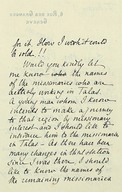 for it. How I wish it could
be old!!
Would you kindly let
me know who the names
of the missionaries who are
actively working in Talas.
A young man whom I know
intends to make a journey
to that region by missionary
interest and I should like to
introduce him to the missionaries
in Talas – As there have been
many changes in that station
since I was there I should
like to know the names of
the remaining missionaries